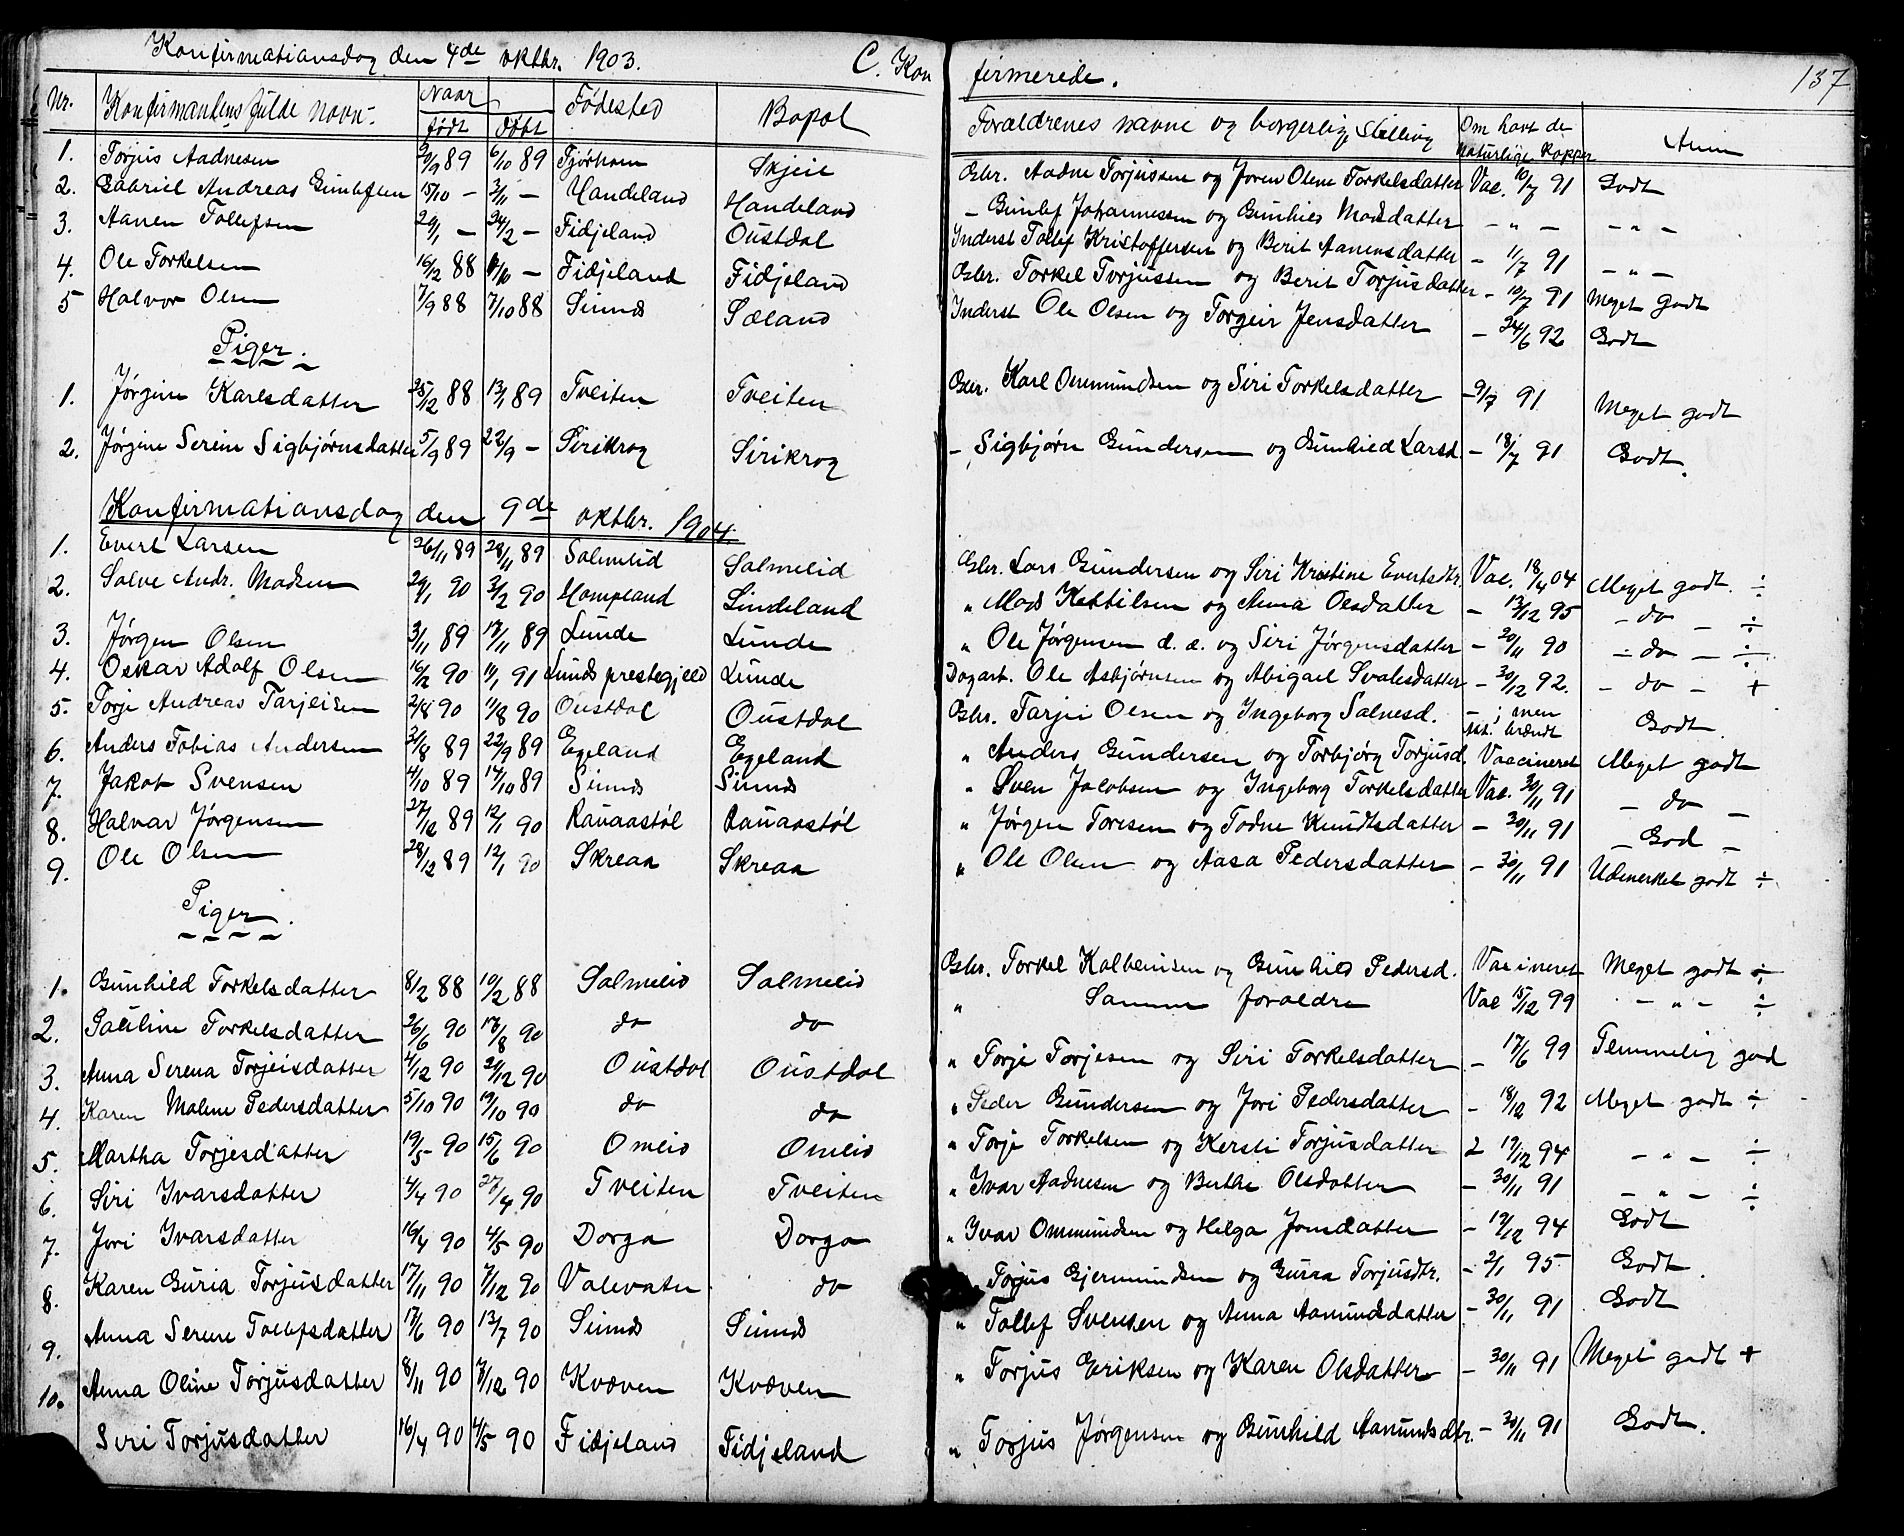 Konfirmationsdag den 4de oktbr. 1903. C. Konfirmerede. 137
Nr. Konfirmantens fulde navn. Naar født døbt Fødested Bopæl Forældrenes navne og borgerlige stilling Om havt de naturlige Kopper Anm
1. Torjus Aadnesen 20/9 89 6/10 89 Tjørhom Skjeie Gbr. Aadne Torjussen og Joren Oline Torkelsdatter Vac. 10/7 91 Godt
2. Gabriel Andreas Gunlefsen 15/10 - 3/11 - Handeland Handeland - Gunlef Johannessen og Gunhild Madsdatter - " - - " -
3. Aanen Tollefsen 29/1 - 24/2 - Fidjeland Oustdal Inderst Tollef Kristoffersen og Berit Aanensdatter - 11/7 91 - " -
4. Ole Torkelsen 16/2 88 - Fidjeland Fidjeland Gbr. Torkel Torjussen og Berit Torjusdatter - 10/7 91 Meget Godt
5 Halvor Olsen 7/9 88 7/10 88 Sinnes Sæland Inderst Ole Olsen og Torgeir Jensdatter - 24/6 92 Godt
Piger.
1. Jørgine Karlsdatter 25/12 88 13/1 89 Tveiten Tveiten Gbr. Karl Ommundsen og Siri Torkelsdatter - 9/7 91 Meget godt
2. Jørgine Serine Sigbjørnsdatter 5/9 89 22/9 - Sirikrog Sirikrog - Sigbjørn Gundersen og Gunhild Larsd. - 18/7 91 Godt.
Konfirmationsdag den 9de oktbr. 1904.
1. Evert Larsen 26/11 89 28/11 89 Salmelid Salmelid Gbr. Lars Gundersen og Siri Kristine Evertsdtr. Vac. 18/4 04 Meget godt. ÷
2. Salve Andr. Madsen 29/1 90 3/2 90 Hompland Lindeland " Mads Kettilsen og Anna Olsdatter - 13/12 95 - do - ÷
3. Jørgen Olsen 3/11 89 17/11 89 Lunde Lunde " Ole Jørgensen d. æ. og Siri Jørgensdatter - 20/11 90 - do - ÷
4. Oskar Adolf Olsen 16/2 90 11/1 91 Lunds prestegjeld Lunde Dagarb. Ole Asbjørnsen og Abigael Svalesdatter - 30/12 92. - do - +
5. Torje Andreas Tarjeisen 2/8 90 11/8 90 Oustdal Oustdal Gbr. Tarjei Olsen og Ingeborg Salvesd. - ; men att. brændt Godt.
6. Anders Tobias Andersen 31/8 89 22/9 89 Egeland Egeland " Anders Gundersen og Torbjørg Torjusd. Vaccineret Meget godt
7. Jakob Svensen 4/10 89 14/10 89 Sinnes Sinnes " Sven Jakobsen og Ingeborg Torkelsdatter Vac. 30/11 91 - do -
8. Halvar Jørgensen 27/12 89 12/1 90 Rauaastøl Rauaastøl " Jørgen Toresen og Todne Knudtsdatter - 30/11 91 - God -
9. Ole Olsen 28/12 89 12/1 90 Skreaa Skreaa " Ole Olsen og Aasa Pedersdatter - 30/11 91 Udmerket godt ÷
Piger.
1. Gunhild Torkelsdatter 8/2 88 19/2 88 Salmelid Salmelid Gbr. Torkel Kolbeinsen og Gunhild Pedersd. Vaccineret Meget godt ÷
2. Pauline Torkelsdatter 26/6 90 17/8 90 do do " Samme forældre Vac 15/12 99 - " - ÷
3. Anna Serena Torjeisdatter 4/12 90 21/12 90 Oustdal Oustdal " Torje Torjesen og Siri Torkelsdatter - 17/6 99 Temmelig god
4. Karen Malene Pedersdatter 5/10 90 19/10 90 do do " Peder Gundersen og Jori Pedersdatter - 18/12 92 Meget godt ÷
5. Martha Torjesdatter 19/5 90 15/6 90 Omlid Omlid " Torje Torkelsen og Kersti Torjusdatter 2 17/12 94 - " - ÷
6. Siri Ivarsdatter 4/4 90 27/4 90 Tveiten Tveiten " Ivar Aadnesen og Berthe Olsdatter - 30/11 91 - " - ÷
7. Jori Ivarsdatter 16/4 90 4/5 90 Dorga Dorga " Ivar Ommundsen og Helga Jonsdatter - 19/12 94 Godt
8. Karen Guria Torjusdatter 17/11 90 7/12 90 Valevatn do Torjus Gjermundsen og Guria Torjusdtr. - 2/1 95 Godt.
9. Anna Serene Tollefsdatter 17/6 90 13/7 90 Sinnes Sinnes " Tollef Svensen og Anna Aanundsdatter - 30/11 91 Godt
10. Anna Oline Torjusdatter 8/11 90 7/12 90 Kvæven Kvæven " Torjus Eriksen og Karen Olsdatter - 30/11 91 Meget godt +
Siri Torjusdatter 16/4 90 4/5 90 Fidjeland Fidjeland " Torjus Jørgensen og Gunhild Aanundsdtr. - 30/11 91 Godt.